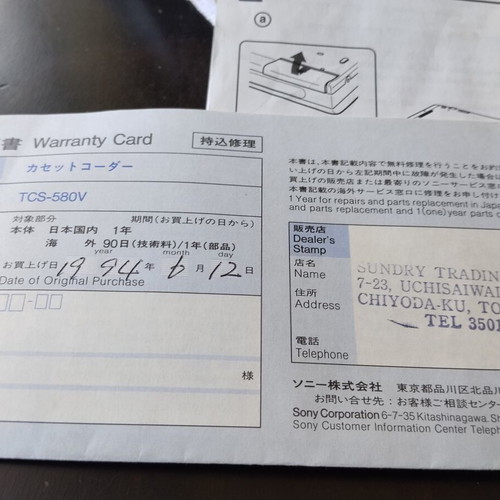 a
書 Warranty Card 持込修理
カセットコーダー
TCS-580V
対象部分 期間(お買上げの日から)
本体 日本国内 1年
海 外 90日(技術料)/1年(部品)
year month day
お買上げ日 1994年 6月 12日
Date of Original Purchase
様
本書は、本書記載内容で無料修理を行うことをお約
い上げの日から左記期間中に故障が発生した場合は
買上げの販売店または最寄りのソニーサービス窓
本書記載の海外サービス窓口に修理をお申し付け
1 Year for repairs and parts replacement in Japa
and parts replacement and 1(one)year parts
販売店
Dealer's
Stamp
店名
Name
住所
Address
電話
Telephone
SUNDRY TRADIN
7-23, UCHISAIWAI
CHIYODA-KU, TO
TEL 3501
ソニー株式会社 東京都品川区北品川
お問い合せ先:お客様ご相談センター
Sony Corporation 6-7-35 Kitashinagawa, Sh
Sony Customer Information Center Teleph